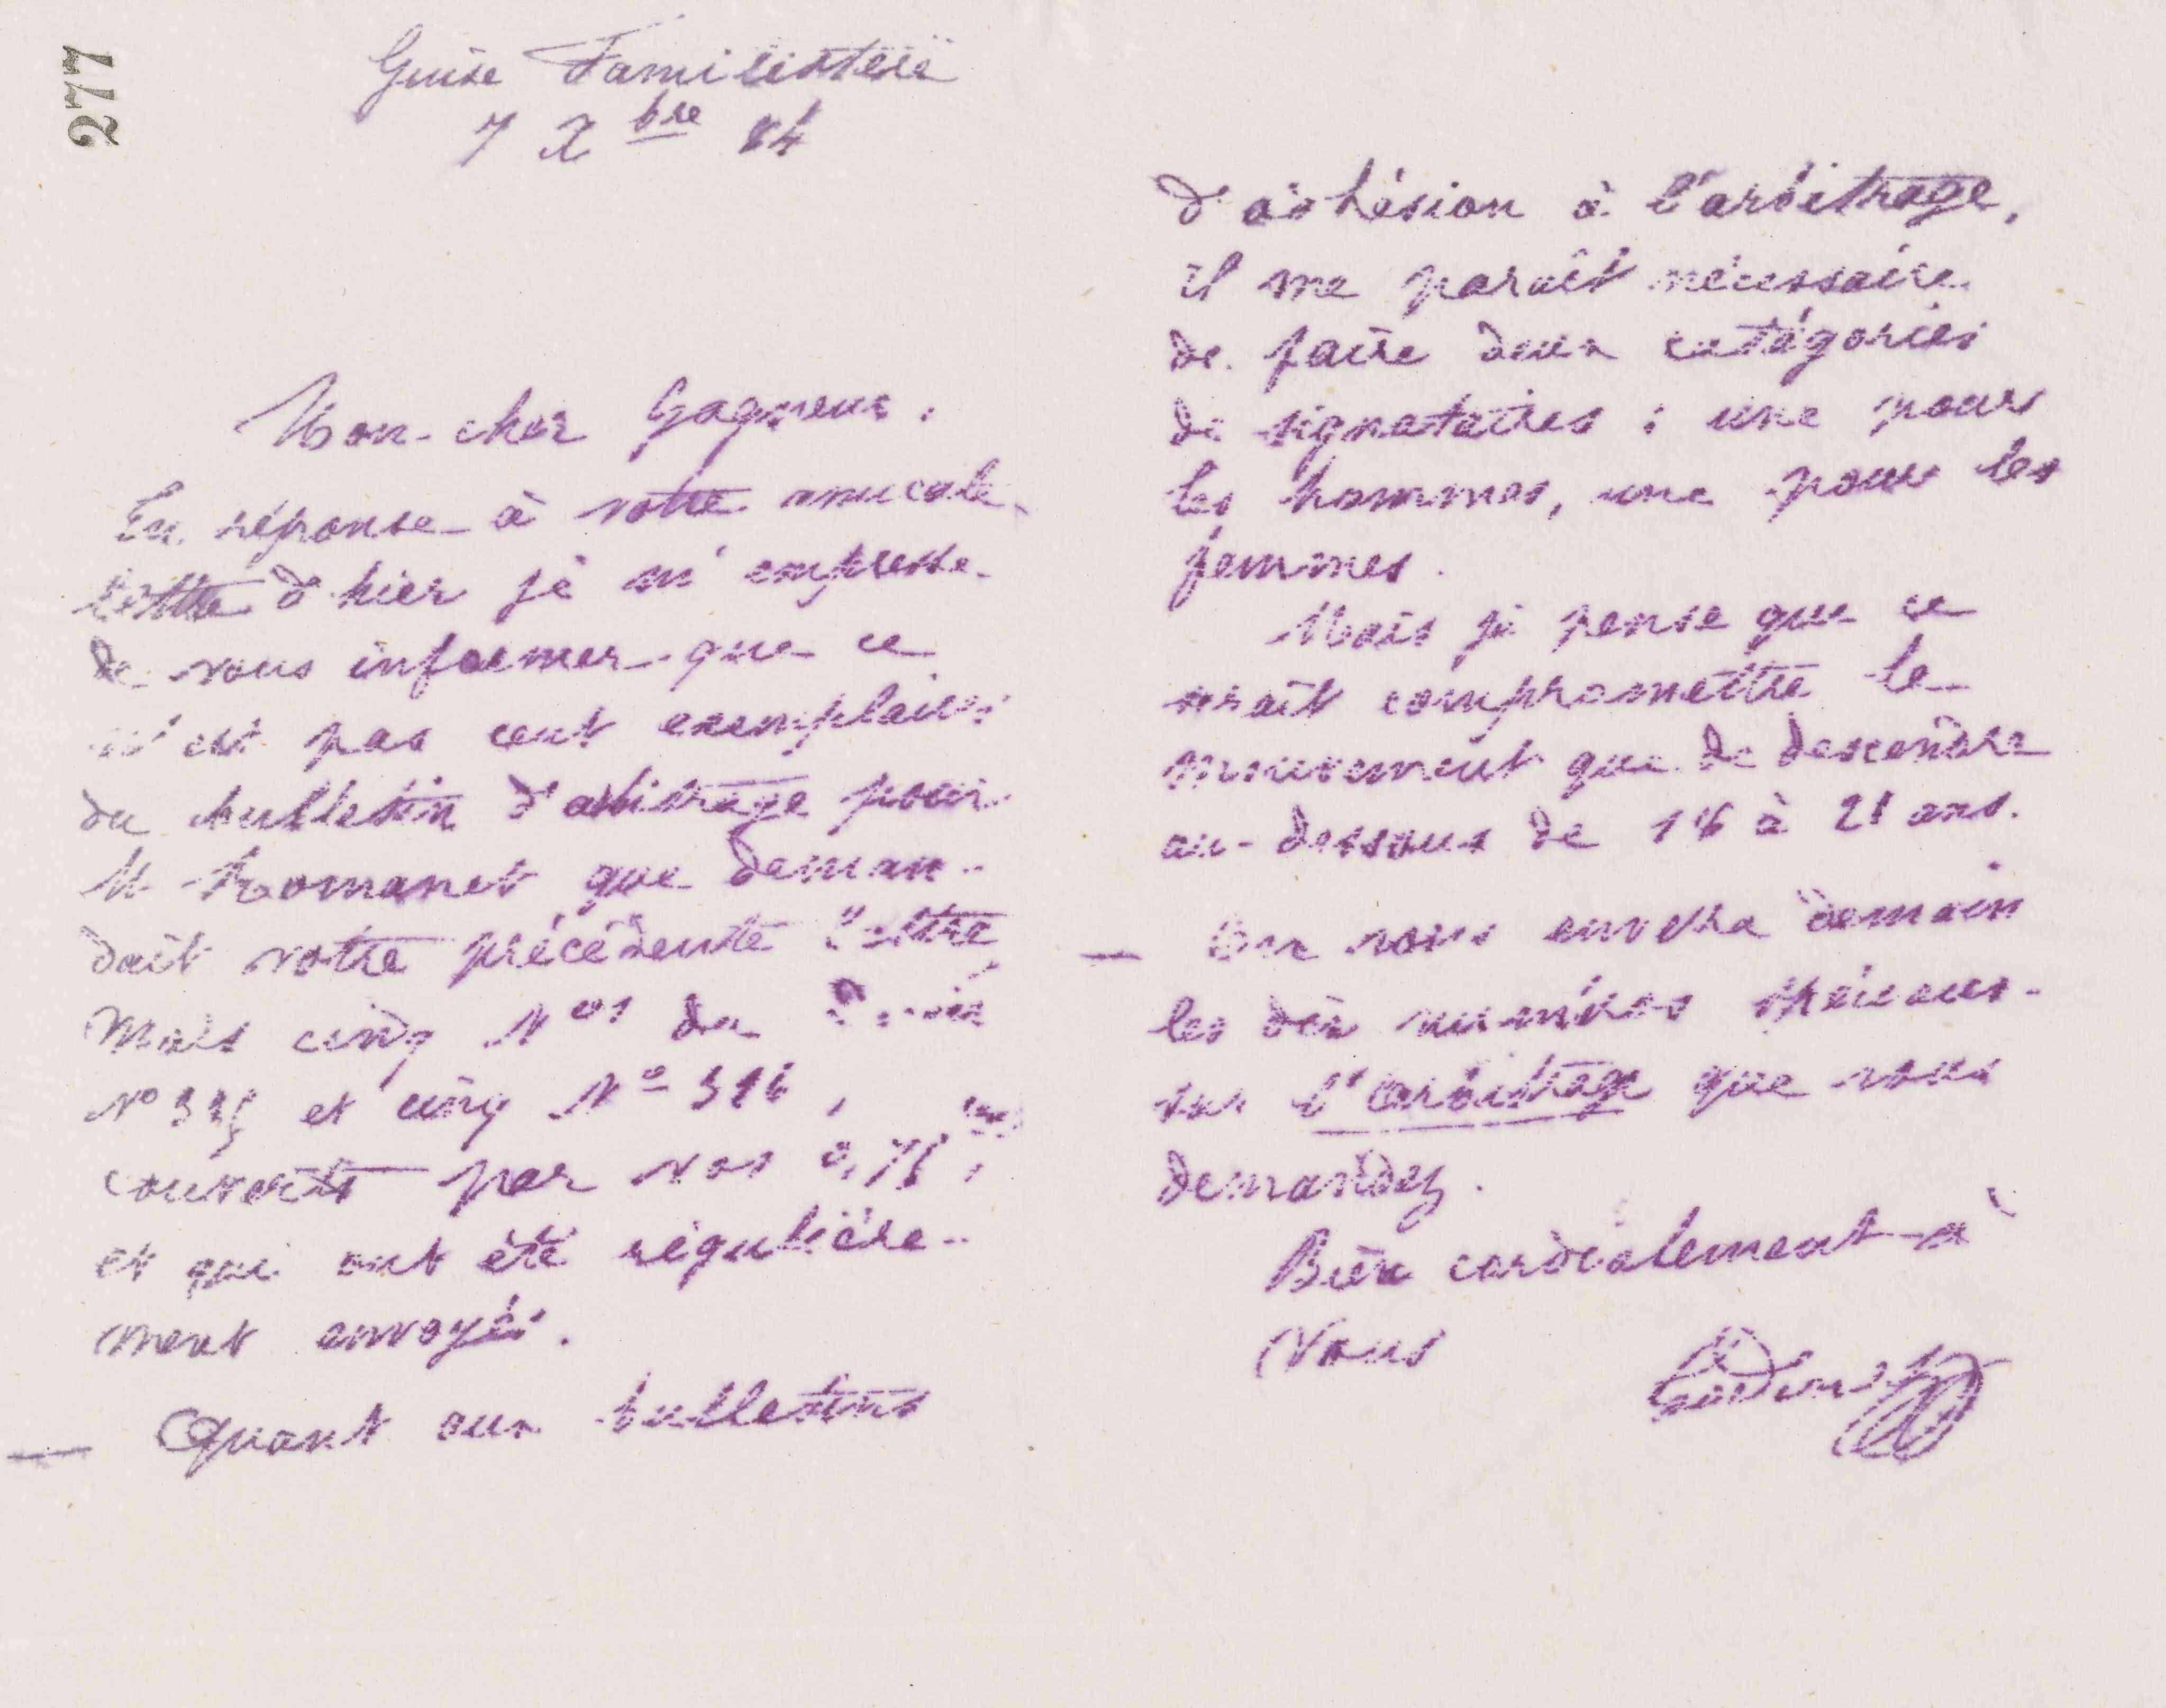 277
Guise Familistère
7 Xbre 84
Mon cher Gagneur,
En réponse à votre amicale
lettre d'hier je m'empresse
de vous informer que ce
n'est pas cent exemplaires
du bulletin d'arbitrage pour
M. Romanet que deman-
dait votre précédente lettre
Mais cinq Nos du Devoir
No et cinq No
couverts par vos 0,75,
et qui ont été régulière-
ment envoyés.
— Quant aux bulletins
d'adhésion à l'arbitrage,
il me paraît nécessaire
de faire deux catégories
de signataires : une pour
les hommes, une pour les
femmes.
Mais je pense que ce
serait compromettre le
mouvement que de descendre
au-dessous de 18 à 21 ans.
— On vous enverra demain
les dix numéros spéciaux
sur l'arbitrage que vous
demandez.
Bien cordialement à
vous
Godin